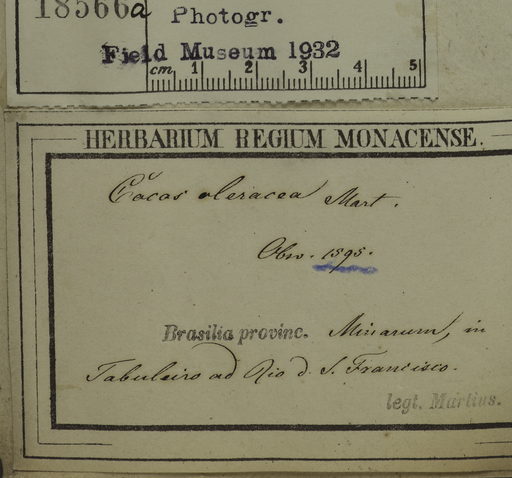 18566a
Photogr.
Field Museum 1932
cm 1 2 3 4 5
HERBARIUM REGIUM MONACENSE.
Cocos oleracea Mart.
Obs. 1595.
Brasilia provinc. Minarum, in
Tabuleiro ad Rio d. S. Francisco.
legt. Martius.